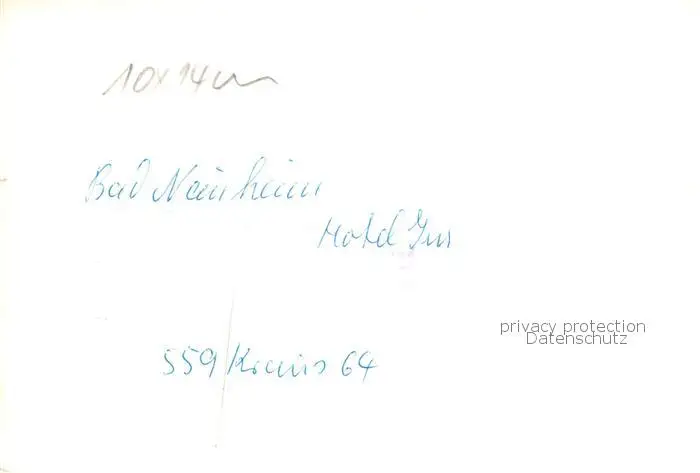 10x14cm
Bad Nauheim
Hotel
559/Krauss 64
privacy protection
Datenschutz